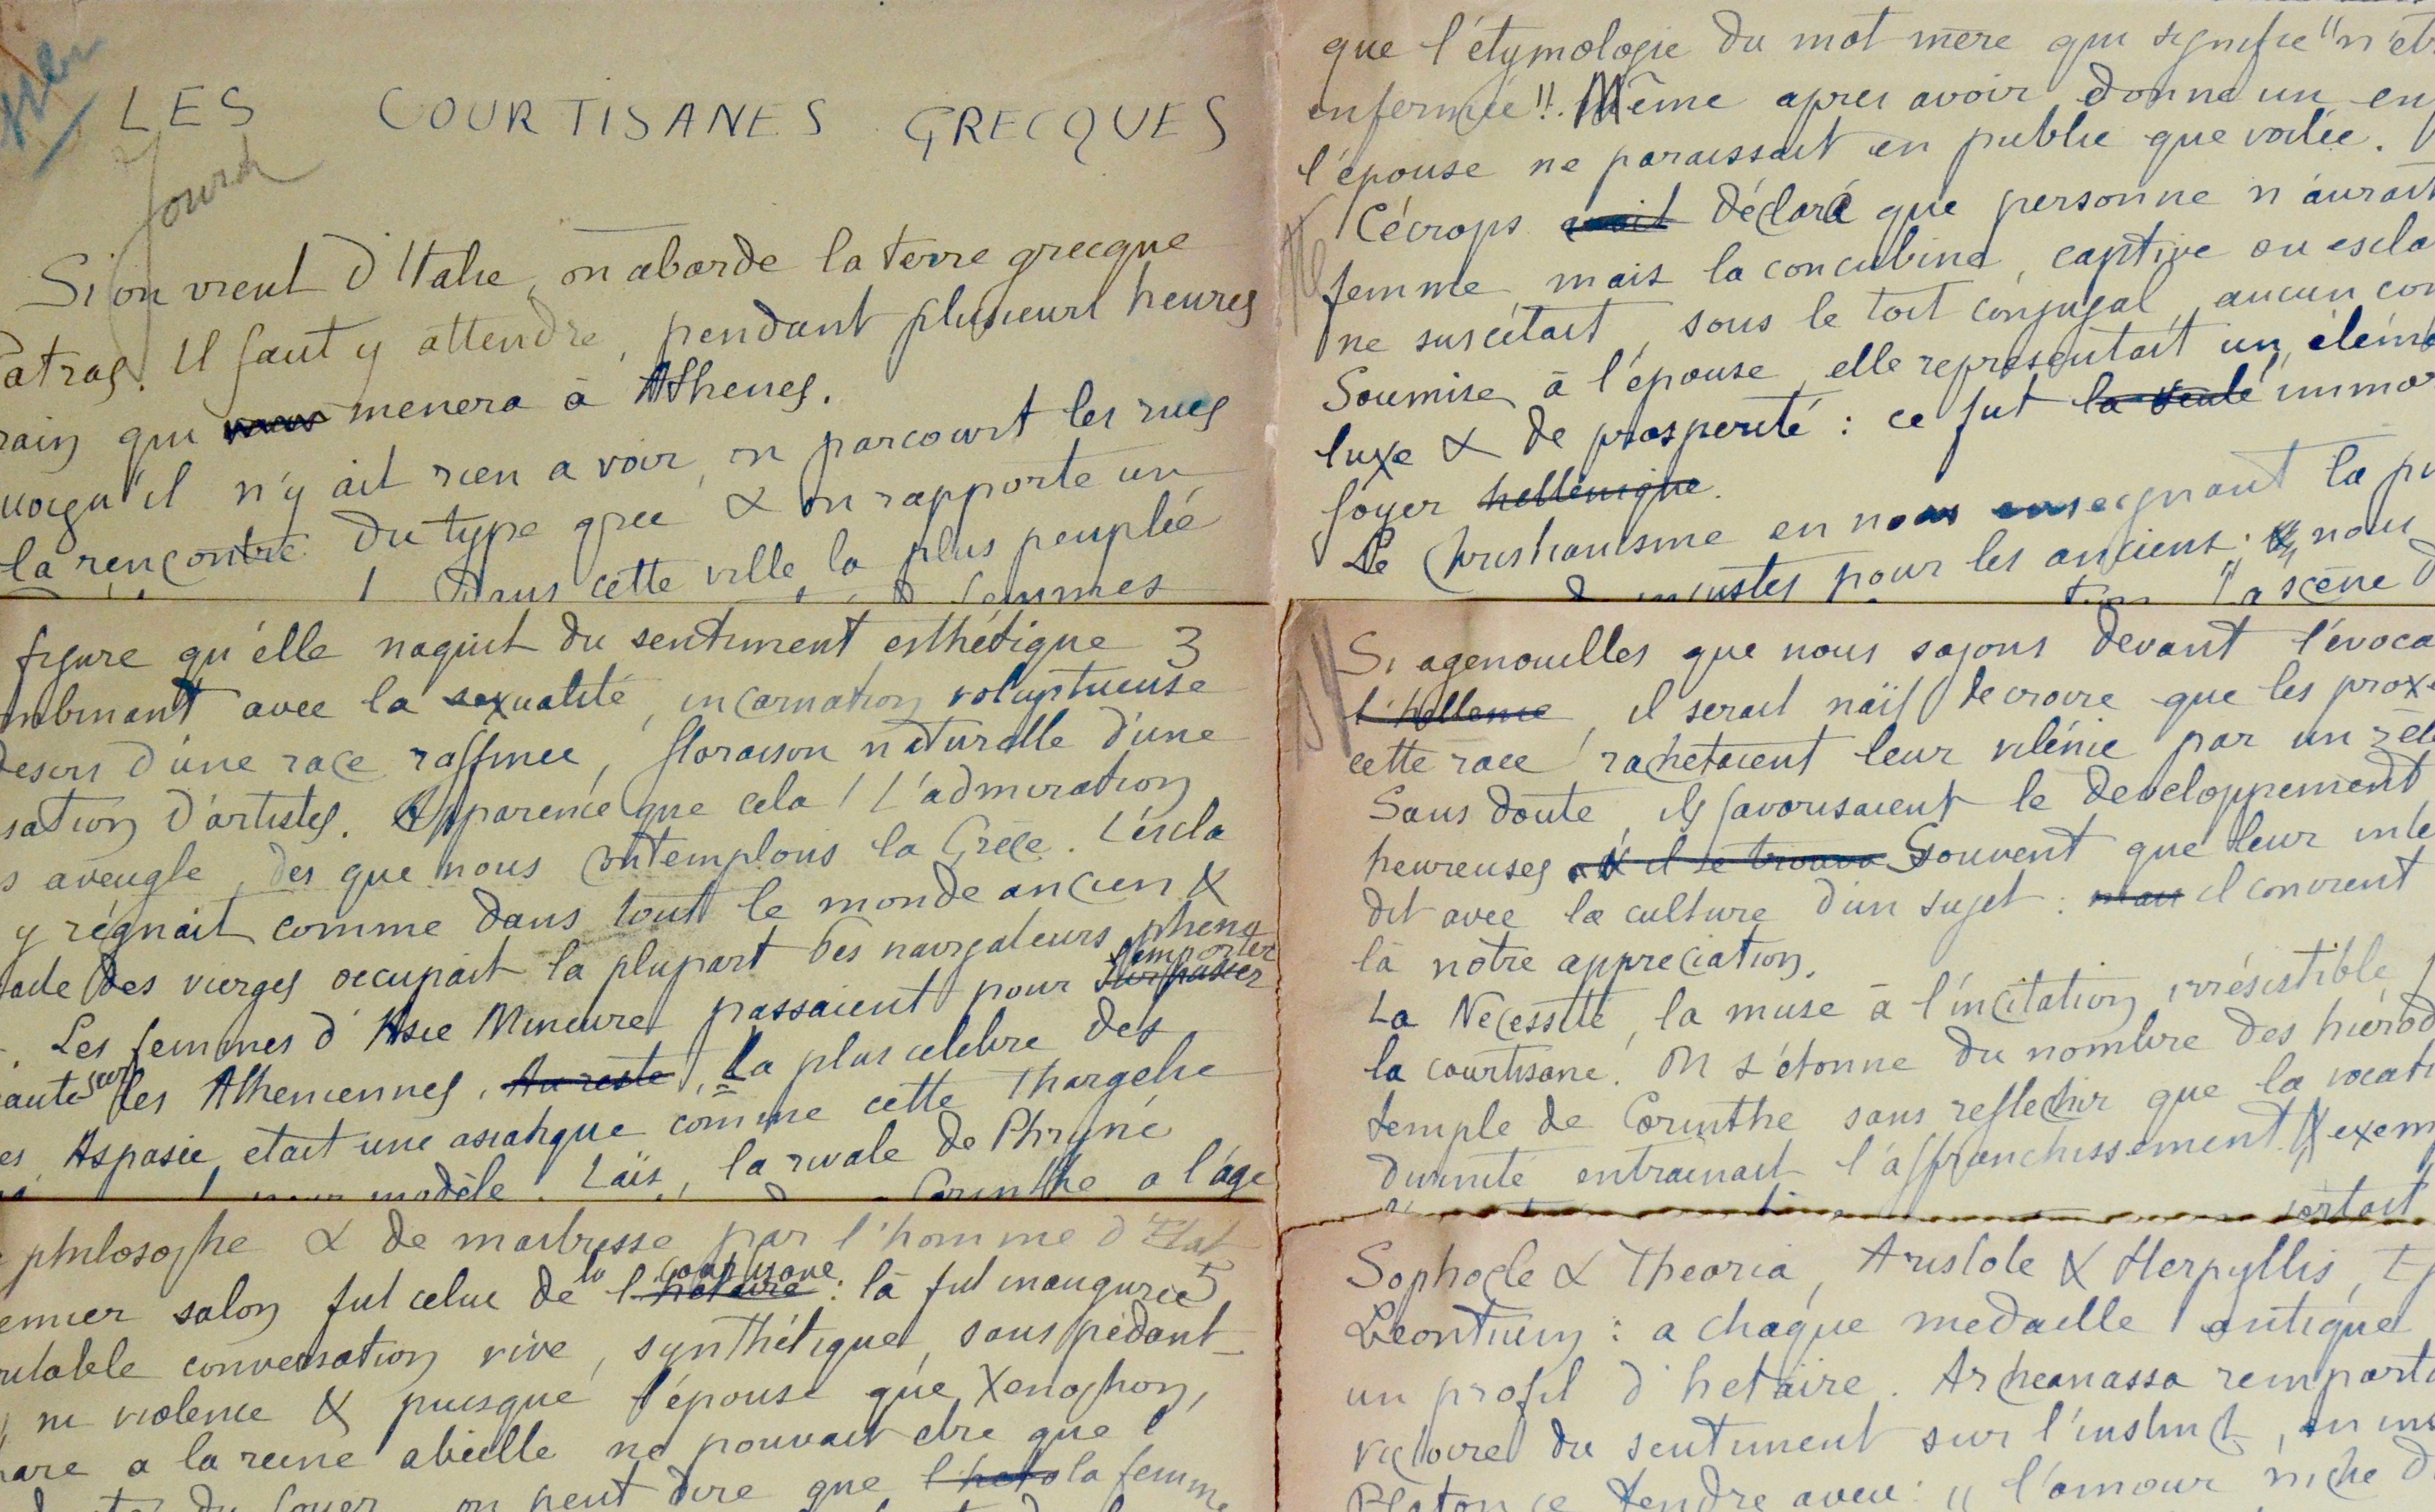 LES COURTISANES GRECQUES
Si on vient d'Italie, on aborde la terre grecque
Patras. Il faut y attendre, pendant plusieurs heures
rain qui menera à Athenes.
uoiqu'il n'y ait rien a voir, on parcourt les rues
la rencontre du type grec & on rapporte un
Dans cette ville la plus peuplée
femmes
que l'étymologie du mot mère qui signifie "n'êt
enfermée". Même apres avoir donné un en
l'épouse ne paraissait en public que voilée.
Cécrops avait déclaré que personne n'aurait
femme, mais la concubine, captive ou escla
ne suscitait, sous le toit conjugal, aucun con
Soumise à l'épouse, elle représentait un élémé
luxe & de prosperité : ce fut la seule immor
foyer hellénique.
Le Christianisme en nous enseignant la pu
injustes pour les anciens. nous
la scène d
figure qu'elle naquit du sentiment esthétique 3
mbinant avec la sexualité, incarnation voluptueuse
desirs d'une race raffinee, floraison naturelle d'une
sation d'artistes. Apparence que cela ! L'admiration
s aveugle, des que nous contemplons la Grèce. L'escla
y régnait comme dans tout le monde ancien &
des vierges occupait la plupart des navigateurs phenq
l'emporter
Les femmes d'Asie Mineure passaient pour surpasser
sur les Atheniennes. Au reste, La plus celebre des
es Aspasie etait une asiatique comme cette Thargelie
modèle. Laïs, la rivale de Phryné
Corinthe a l'âge
Si agenouilles que nous soyons devant l'évoca
l'hellenie, il serait naïf de croire que les prox
cette race rachetaient leur vilénie par un zèl
Sans doute, ils favorisaient le developpement
heureuses & il se trouva Souvent que leur inte
dit avec la culture d'un sujet : mais il convient
là notre appreciation.
La Necessité, la muse à l'incitation irrésistible,
la courtisane. On s'étonne du nombre des hiérod
temple de Corinthe sans reflechir que la vocati
divinité entrainait l'affranchissement & exem
sortait
philosophe & de maitresse par l'homme d'Etat
la courtisane
emier salon fut celui de l'hetaire : là fut inaugurée 5
ritable conversation vive, synthétique, sans pédant-
ni violence & puisque l'épouse que Xenophon,
are a la reine abeille ne pouvait etre que l
du foyer, on peut dire que la femme
Sophocle & Theoria, Aristote & Herpyllis, Ep
Leontium : a chaque medaille antique
un profil d'hetaire. Archeanassa remporta
victoire du sentiment sur l'instinct, en ins
Platon ce tendre aveu : "l'amour niche d